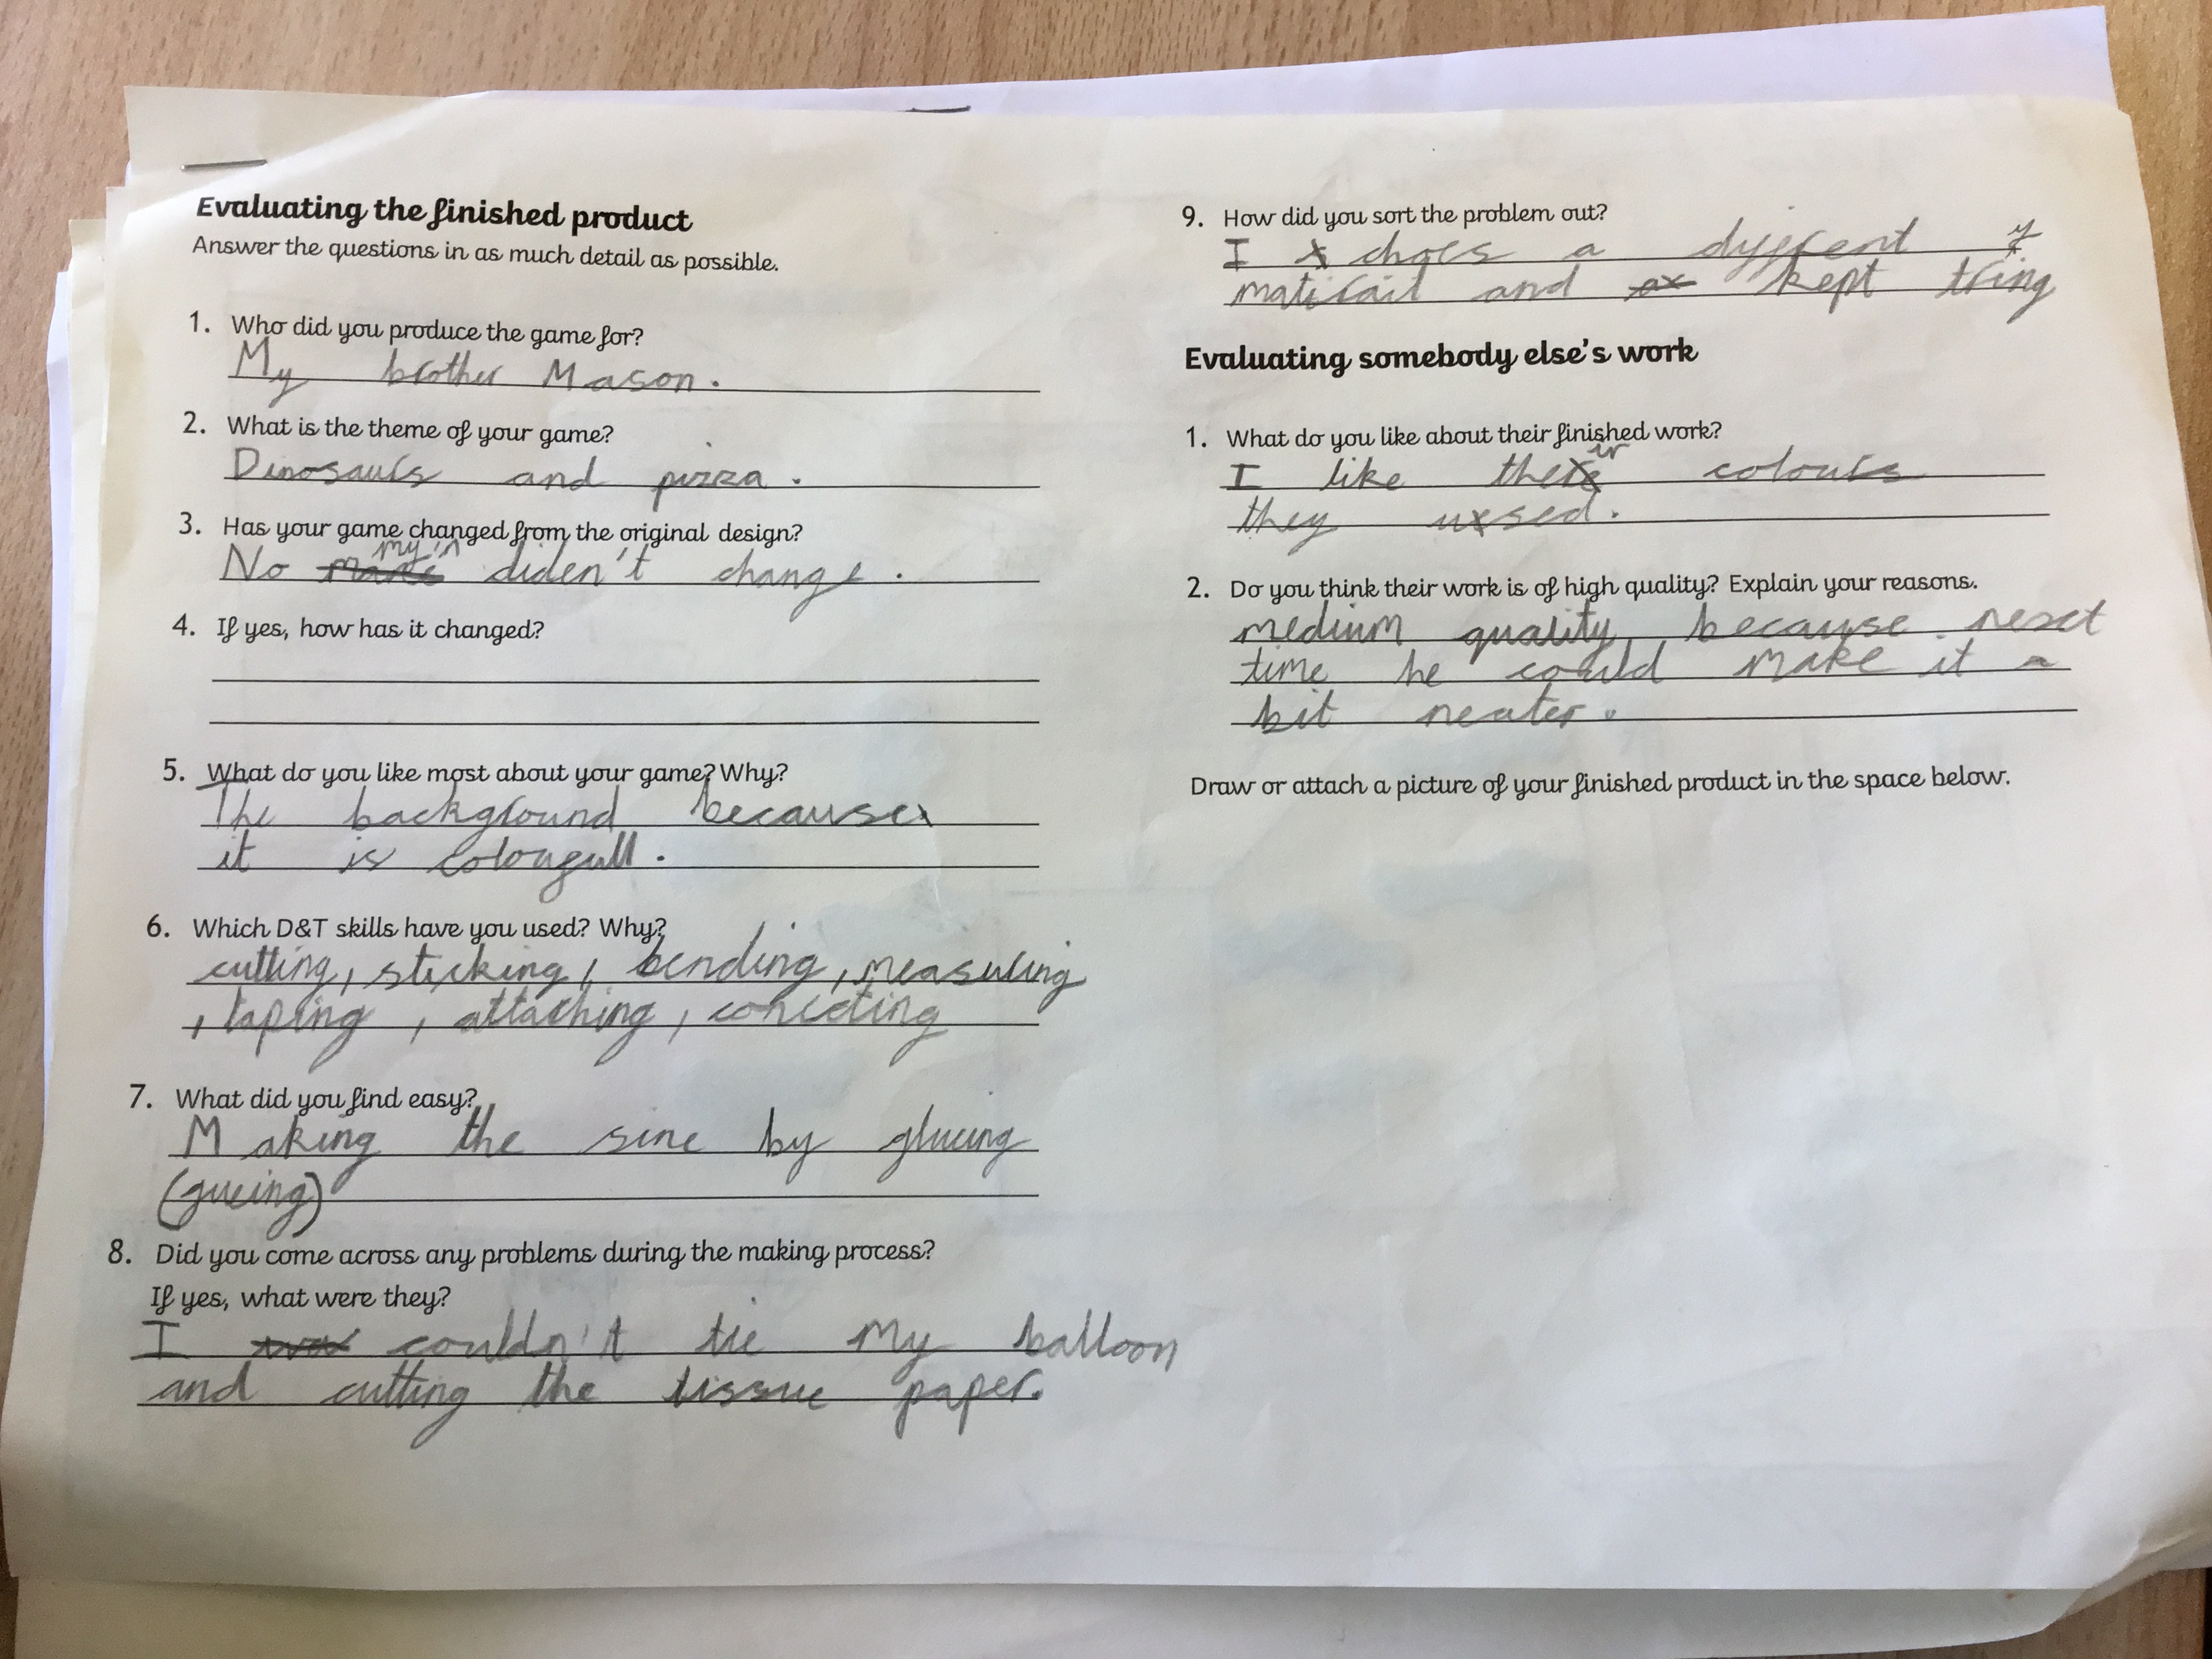 Evaluating the finished product
Answer the questions in as much detail as possible.
1. Who did you produce the game for?
My brother Mason.
2. What is the theme of your game?
Dinosaurs and pizza.
3. Has your game changed from the original design?
No my'n diden't change.
4. If yes, how has it changed?
5. What do you like most about your game? Why?
The background because
it is colougull.
6. Which D&T skills have you used? Why?
cutting, sticking, bending, measuring
, taping, attaching, conecting
7. What did you find easy?
Making the sine by glueing
(glueing)
8. Did you come across any problems during the making process?
If yes, what were they?
I couldn't tie my balloon
and cutting the tissue paper.
9. How did you sort the problem out?
I choes a dyfferent
matirail and kept tring
Evaluating somebody else's work
1. What do you like about their finished work?
I like their colours
they used.
2. Do you think their work is of high quality? Explain your reasons.
medium quality because next
time he could make it a
bit neater.
Draw or attach a picture of your finished product in the space below.